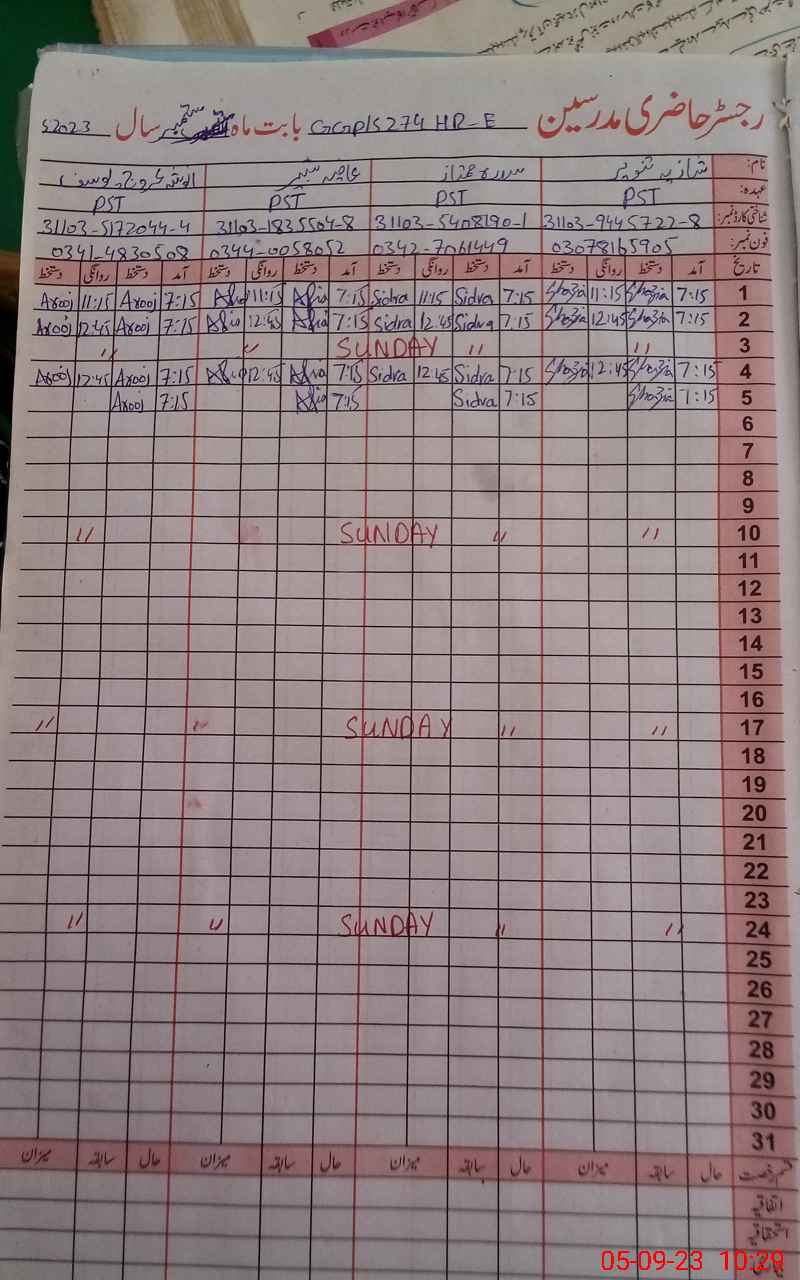 رجسٹر حاضری مدرسین GGP/S 274 HR-E بابت ماہ ستمبر سال 2023
نام: شازیہ تنویر سدرہ ممتاز
عہدہ: PST PST PST PST
شناختی کارڈ نمبر: 31103-9445722-8 31103-5408190-1 31103-1835504-8 31103-5172044-4
فون نمبر: 03078165905 0342-7061449 0344-0058052 0341-4830508
تاریخ آمد دستخط روانگی دستخط آمد دستخط روانگی دستخط آمد دستخط روانگی دستخط آمد دستخط روانگی دستخط
1 7:15 Shazia 11:15 Shazia 7:15 Sidra 11:15 Sidra 7:15 Afia 11:15 Afia 7:15 Arooj 11:15 Arooj
2 7:15 Shazia 12:45 Shazia 7:15 Sidra 12:45 Sidra 7:15 Afia 12:45 Afia 7:15 Arooj 12:45 Arooj
3 " " SUNDAY " "
4 7:15 Shazia 12:45 Shazia 7:15 Sidra 12:45 Sidra 7:15 Afia 12:45 Afia 7:15 Arooj 12:45 Arooj
5 7:15 Shazia 7:15 Sidra 7:15 Afia 7:15 Arooj
6
7
8
9
10 " " SUNDAY "
11
12
13
14
15
16
17 " " SUNDAY " "
18
19
20
21
22
23
24 " " SUNDAY " "
25
26
27
28
29
30
31
قسم رخصت حال سابقہ میزان حال سابقہ میزان حال سابقہ میزان حال سابقہ میزان
اتفاقیہ
استحقاقیہ
05-09-23 10:29